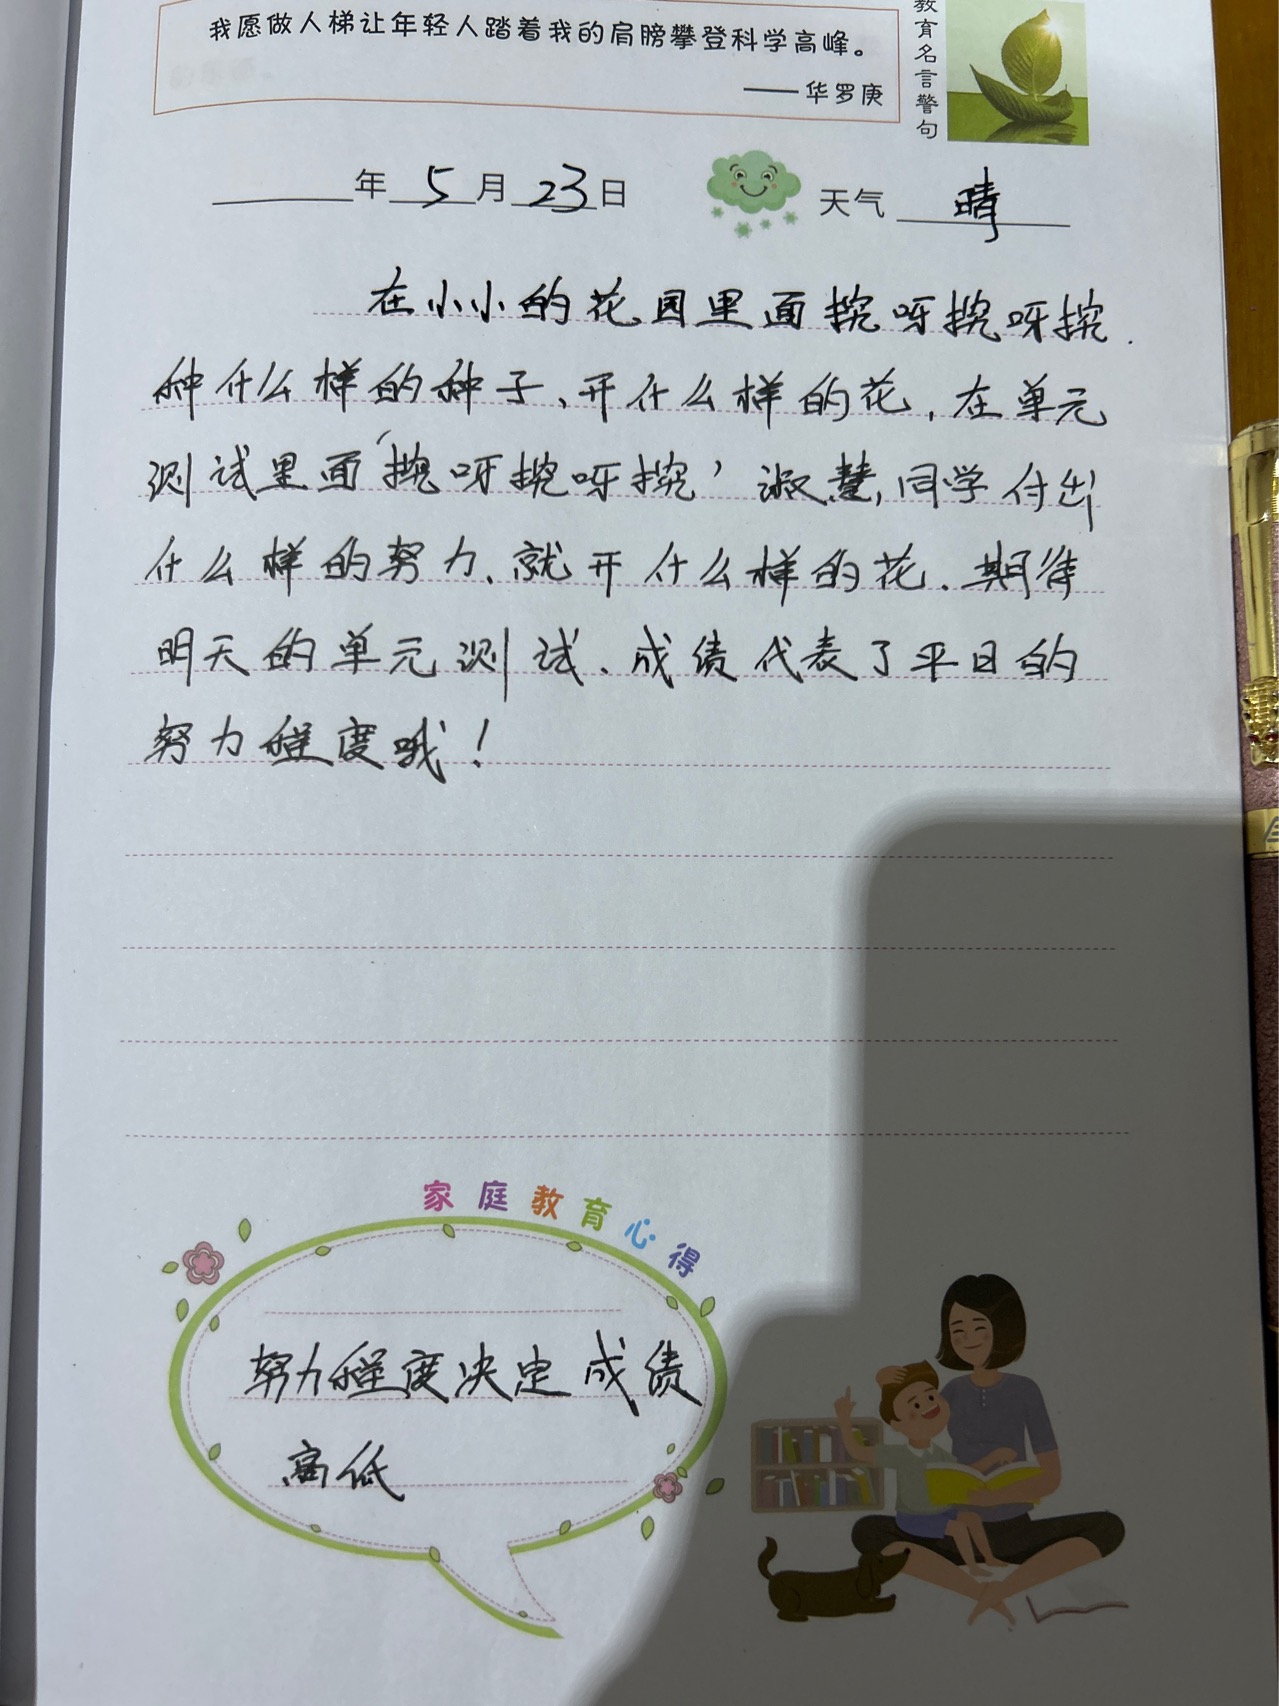 我愿做人梯让年轻人踏着我的肩膀攀登科学高峰。
——华罗庚
教育名言警句
年5月23日
天气 晴
在小小的花园里面挖呀挖呀挖.
种什么样的种子、开什么样的花,在单元
测试里面‘挖呀挖呀挖’淑慧,同学付出
什么样的努力、就开什么样的花.期待
明天的单元测试、成绩代表了平日的
努力程度哦!
家庭教育心得
努力程度决定成绩
高低